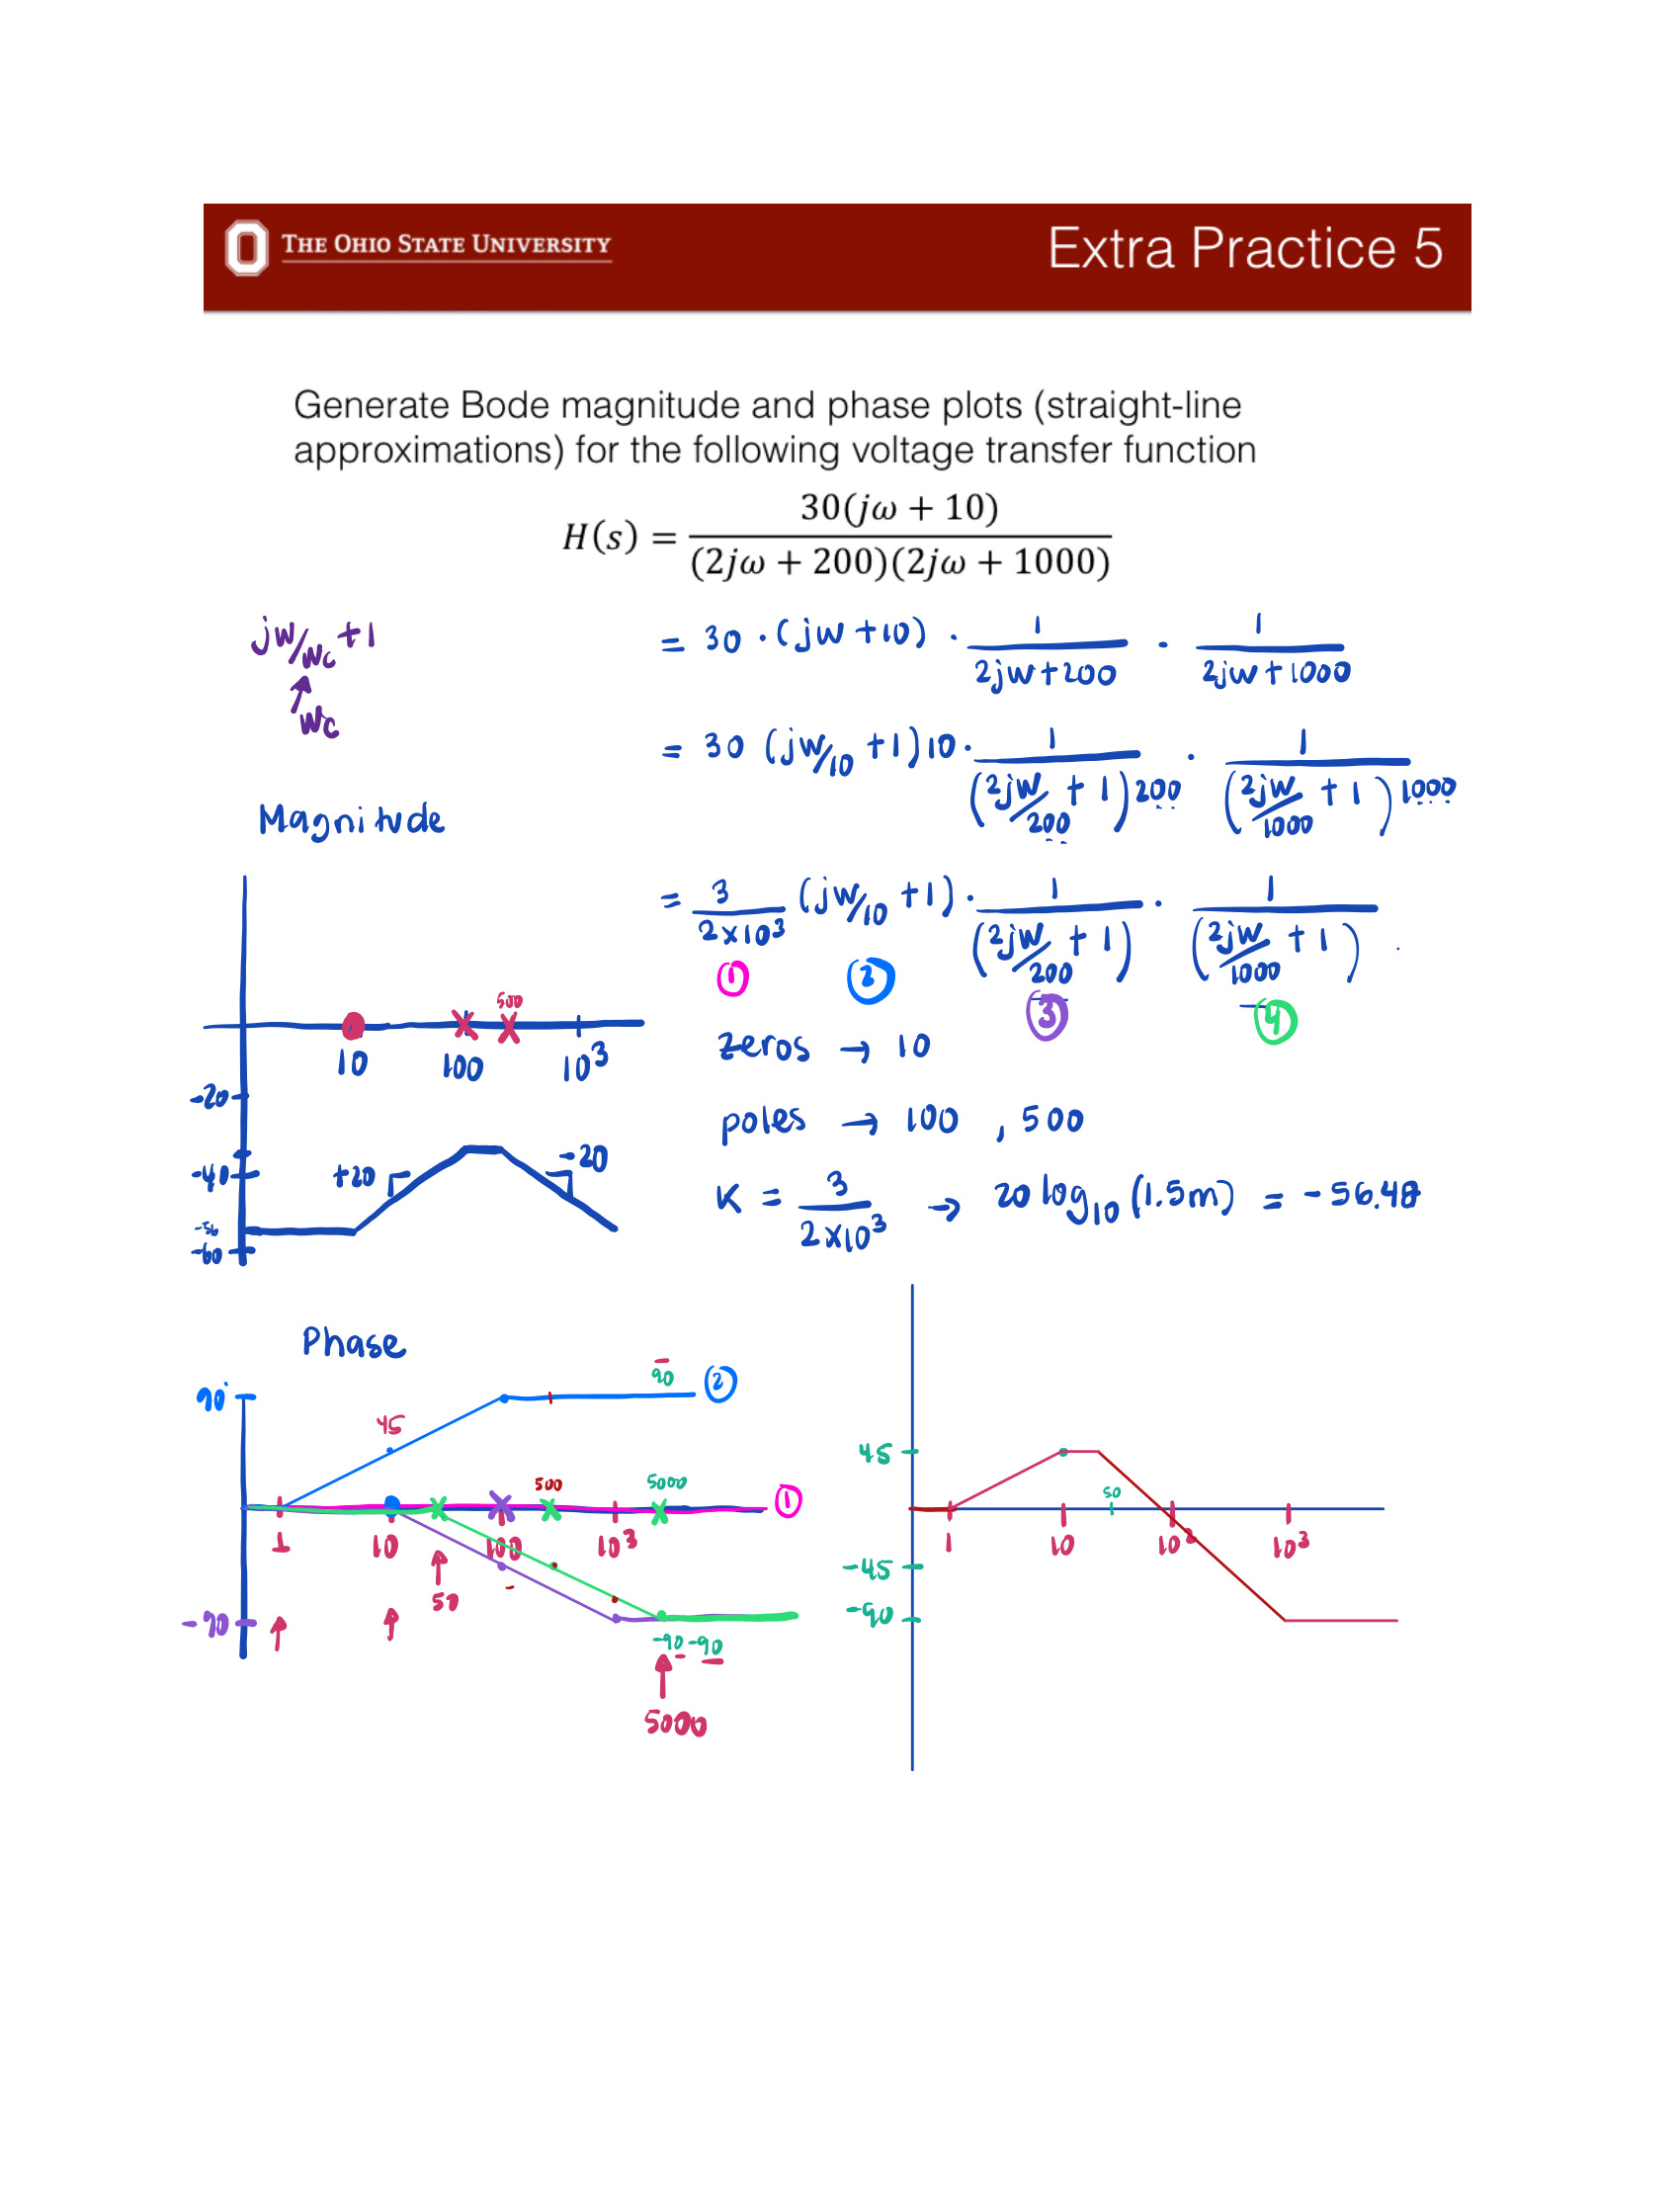 THE OHIO STATE UNIVERSITY
Extra Practice 5
Generate Bode magnitude and phase plots (straight-line
approximations) for the following voltage transfer function
H(s) = 30(jω + 10) / (2jω + 200)(2jω + 1000)
jw/wc +1
wc
= 30 · (jw +10) · 1/2jw+200 · 1/2jw+1000
= 30 (jw/10 +1)10 · 1/(2jw/200 + 1)200 · 1/(2jw/1000 + 1)1000
Magnitude
= 3/2x10³ (jw/10 +1) · 1/(2jw/200 + 1) · 1/(2jw/1000 + 1)
① ② ③ ④
500
10 100 10³
zeros → 10
-20
poles → 100 , 500
+20 -20
-40
K = 3/2x10³ → 20 log10 (1.5m) = -56.48
-56
-60
Phase
90° 90 ②
45
45
500 5000 ①
1 10 100 10³
50
50
1 10 10² 10³
-45
-90
-90
-90 -90
5000